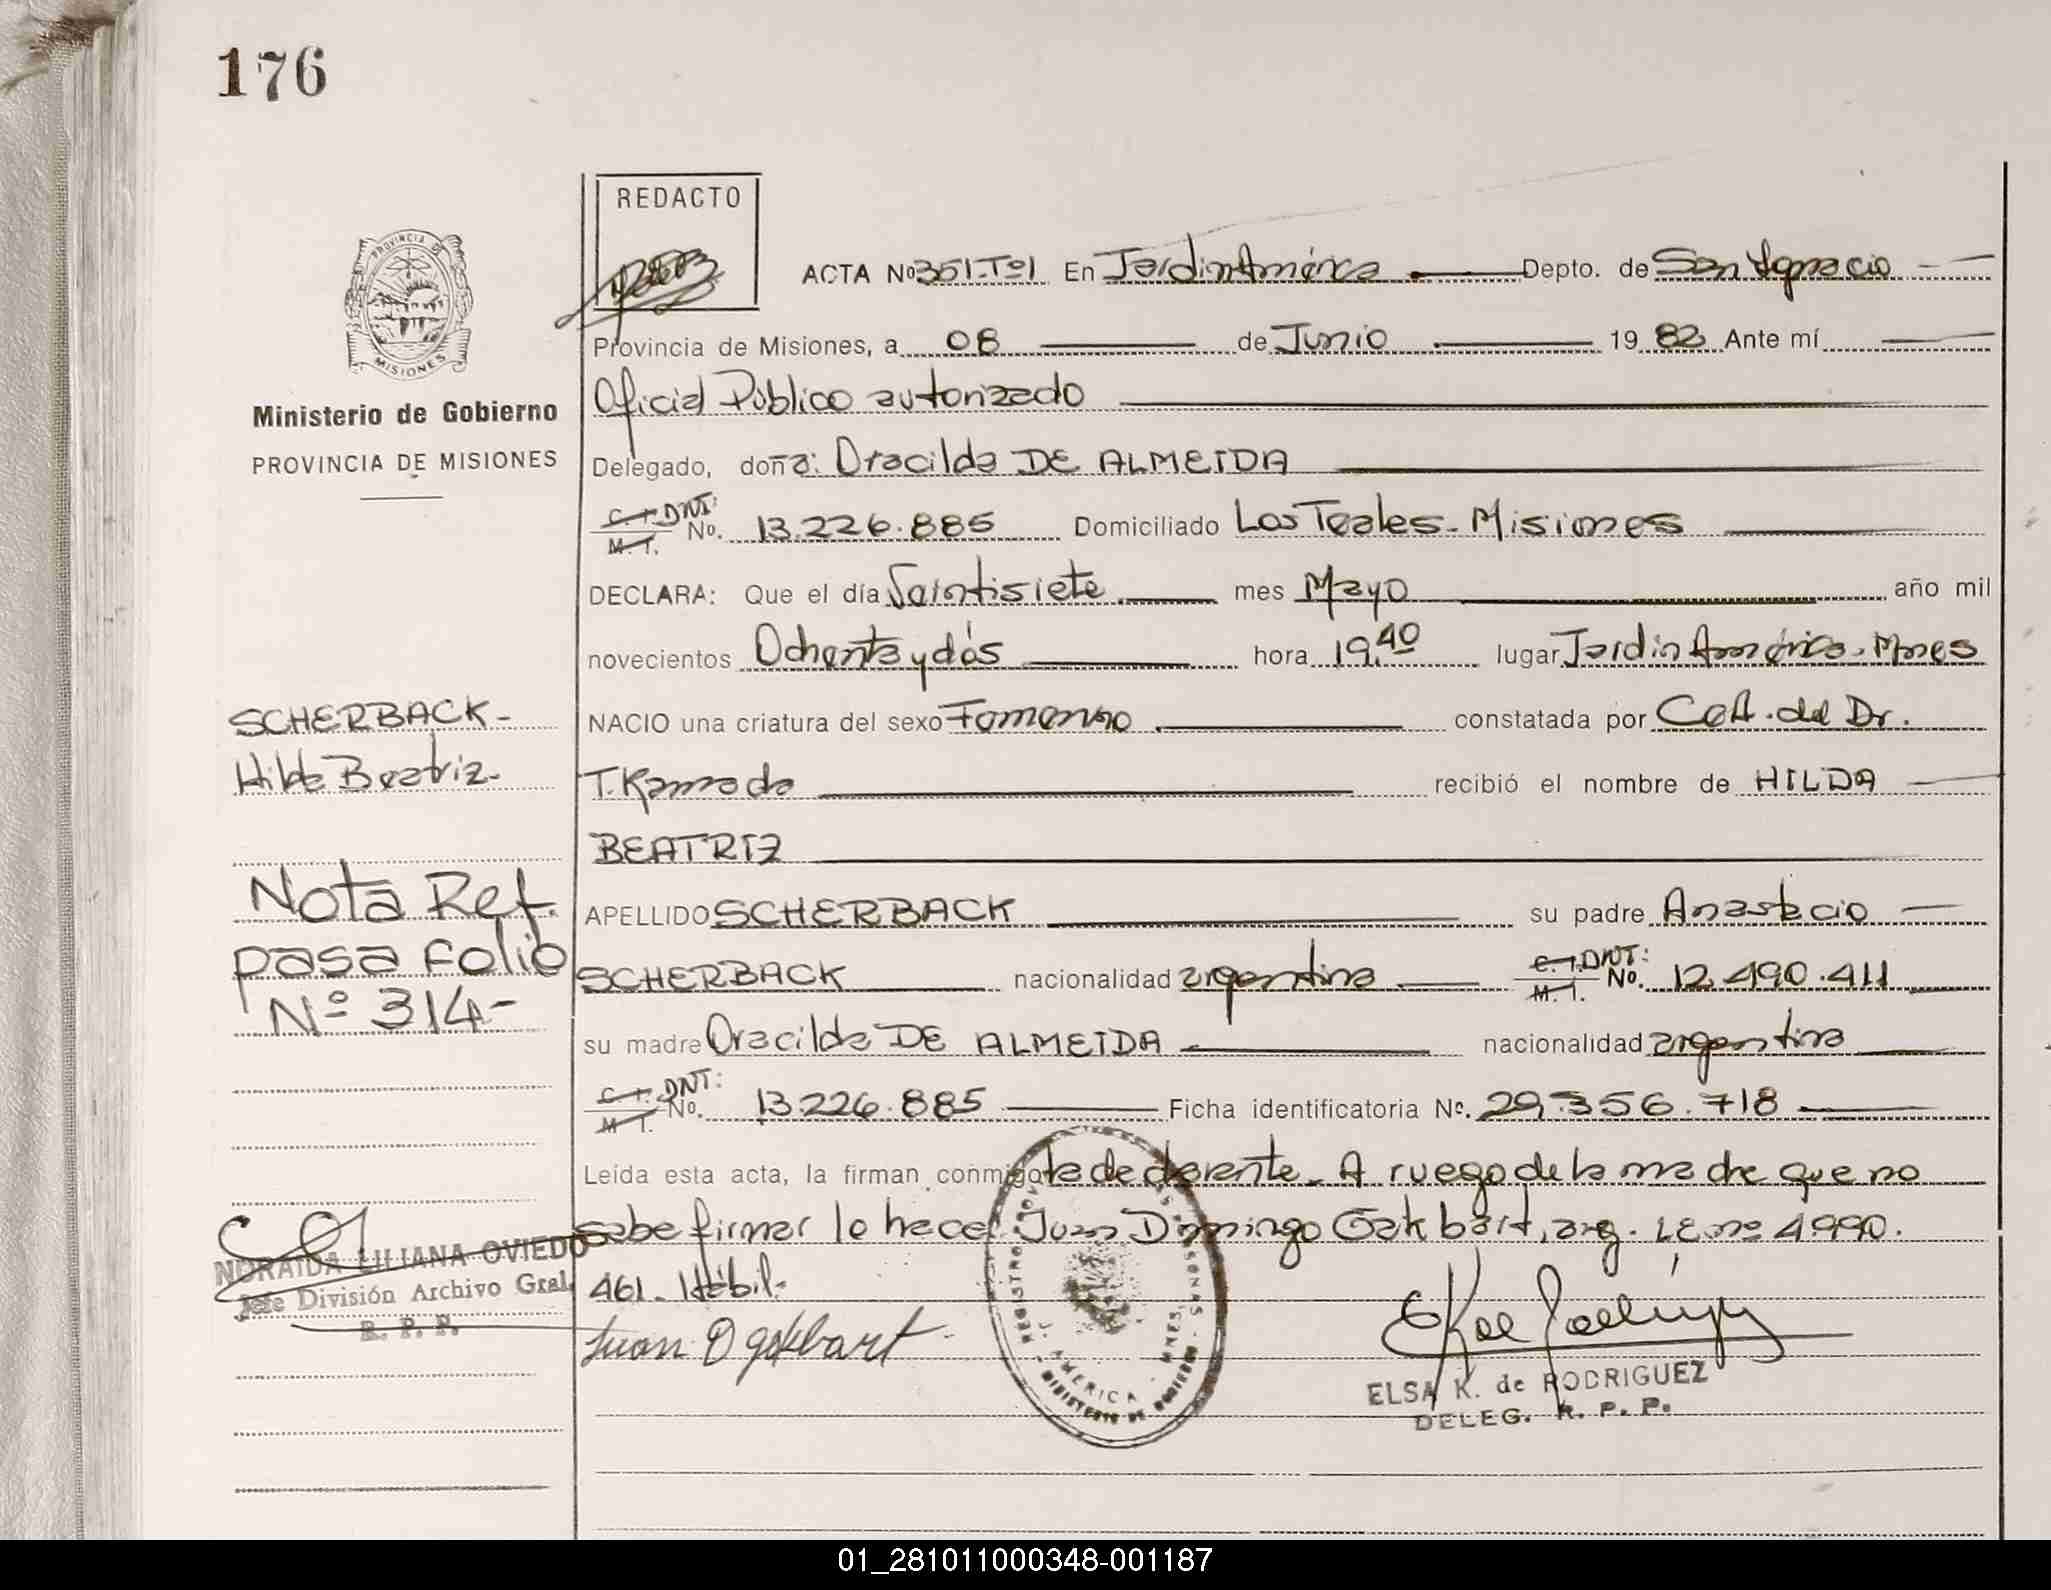 176
REDACTO
PROVINCIA DE
MISIONES
Ministerio de Gobierno
PROVINCIA DE MISIONES
ACTA Nº 351-Tº1 En Jardin América Depto. de San Ignacio
Provincia de Misiones, a 08 de Junio 19 82 Ante mí
Oficial Público autorizado
Delegado, doña: Oracilda DE ALMEIDA
C.I. DNI: M.I. No. 13.226.885 Domiciliado Los Teales - Misiones
DECLARA: Que el día Veintisiete mes Mayo año mil
novecientos Ochenta y dos hora 19.40 lugar Jardin América - Mnes
SCHERBACK-
Hilda Beatriz-
NACIO una criatura del sexo Femenino constatada por Cert. del Dr.
T. Kamada recibió el nombre de HILDA
BEATRIZ
Nota Ref.
pasa folio
Nº 314-
APELLIDO SCHERBACK su padre Anastacio
SCHERBACK nacionalidad argentina C.I. DNI: M.I. No. 12.490.411
su madre Oracilda DE ALMEIDA nacionalidad argentina
C.I. DNI: M.I. No. 13.226.885 Ficha identificatoria Nº. 29.356.718
Leída esta acta, la firman conmigo la declarante. A ruego de la madre que no
sabe firmar lo hace Juan Domingo Gakbart, arg. LE nº 4.990.
461. Hábil.
NORAIDA LILIANA OVIEDO
Jefe División Archivo Gral.
R. P. P.
Juan D Gakbart
ELSA K. de RODRIGUEZ
DELEG. R. P. P.
01_281011000348-001187